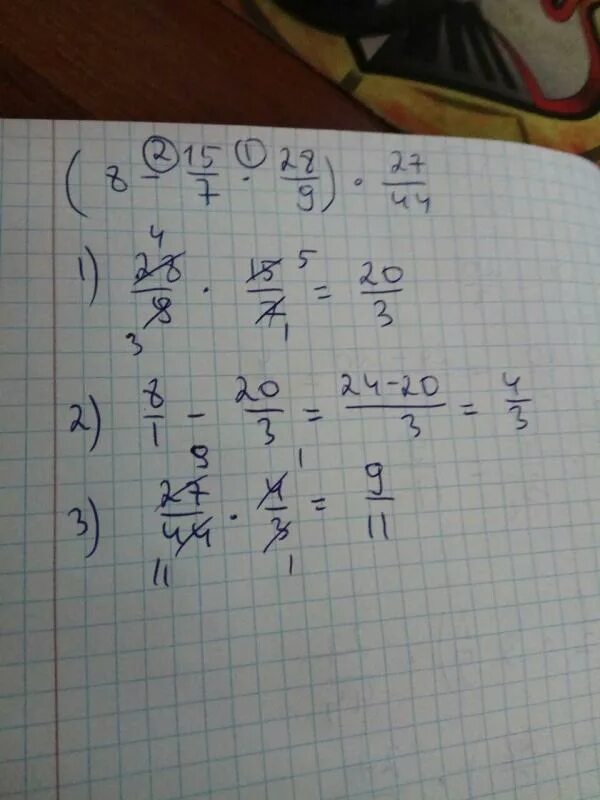 (8 -② 15/7 ·① 28/9) · 27/44
1) 4 28/9 3 · 15/7 5 1 = 20/3
2) 8/1 - 20/3 = 24-20/3 = 4/3
3) 9 27/44 11 · 4/3 1 1 = 9/11